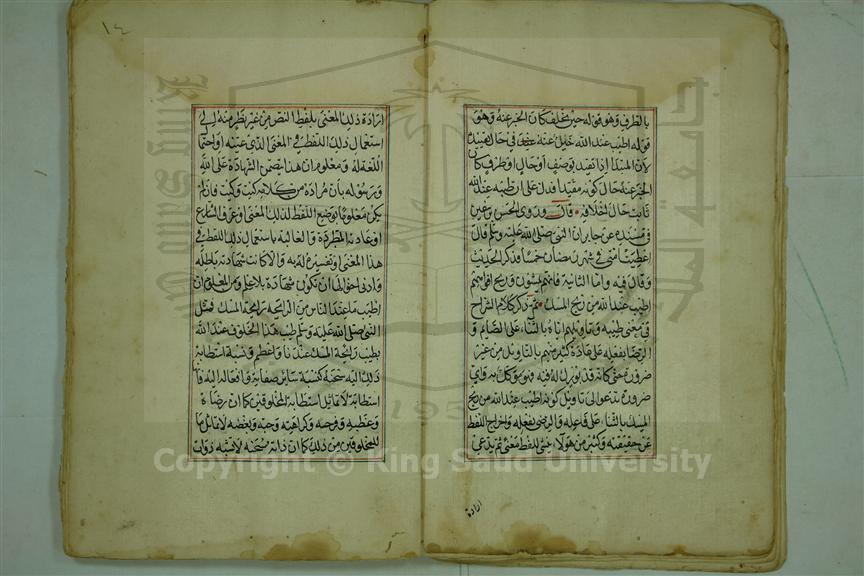 بالظرف وهو قوله حين يخلف كان الخبر عنه وهو
قوله اطيب عند الله خبل عنه في حال تقييد
لان المبتدا اذا تقيد بوصف او حال او ظرف كان
الخبر عنه حال كونه مقيدا فدل على ان طيبه عند الله
ثابت حال اخلافه قال وروى الحسن وغيره
في مسنده عن جابر ان النبي صلى الله عليه وسلم قال
اعطيت امتي في شهر رمضان خمسا فذكر الحديث
وقال فيه واما الثانية فانهم يمسون وريح افواههم
اطيب عند الله من ريح المسك ثم ذكر كلام الشراح
في معنى طيبه وتاويلهم اياه بالثناء على الصايم و
الرضا بفعله على عادة كثير منهم بالتاويل من غير
ضرورة حتى كانه قد بورك له فيه فهو موكل به واي
ضرورة تدعو الى تاويل كونه اطيب عند الله من ريح
المسك بالثناء على فاعله والرضى بفعله واخراج اللفظ
عن حقيقته وكثير من هولاء ينشئ للفظ معنى ثم يدعي
ارادة
١٤
ارادة ذلك المعنى بلفظ النص من غير نظر منه الى
استعمال ذلك اللفظ في المعنى الذي عينه او احتمال
اللغة له ومعلوم ان هذا يتضمن الشهادة على الله
ورسوله بان مراده من كلامه كيت وكيت فان لم
يكن معلوما بوضع اللفظ لذلك المعنى او عرف الشارع
او عادته المطردة او الغالبة باستعمال ذلك اللفظ في
هذا المعنى او تفسيره له به والا كانت شهادته باطلة
وادنى احوالها ان تكون شهادة بلا علم ومن المعلوم ان
اطيب ما عند الناس من الرائحة رائحة المسك فمثل
النبي صلى الله عليه وسلم طيب هذا الخلوف عند الله
بطيب رائحة المسك عندنا واعظم ونسبة استطابة
ذلك اليه سبحانه كنسبة ساير صفاته وافعاله اليه فا
استطابته لا تماثل استطابة المخلوقين كما ان رضاه
وغضبه وفرحه وكراهته وحبه وبغضه لا تماثل ما
للمخلوقين من ذلك كما ان ذاته سبحانه لا تشبه ذوات
جامعة الملك سعود
King Saud University
195
Copyright © King Saud University